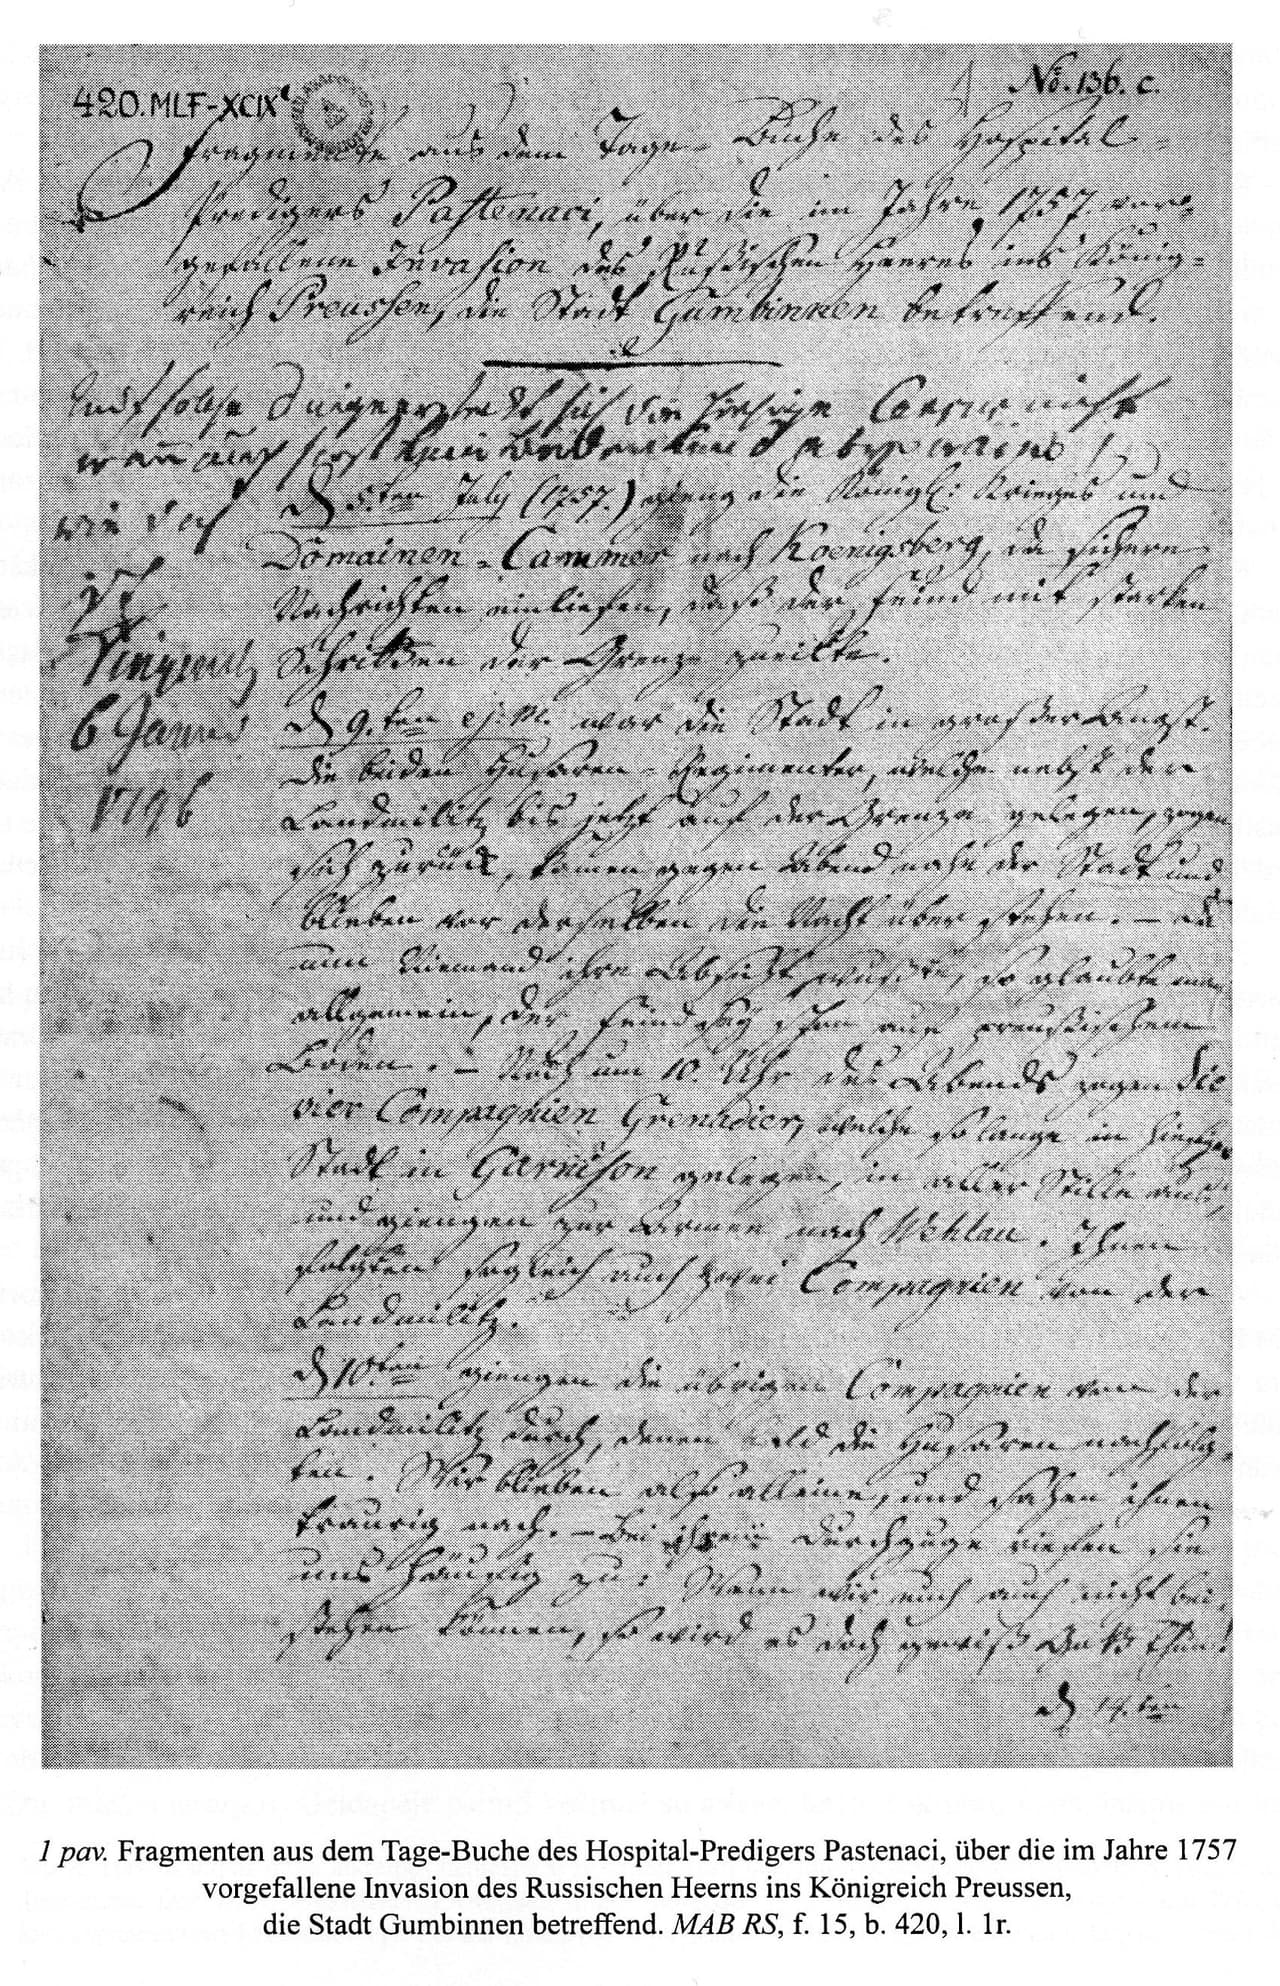 420.MLF-XCIX
No. 136. c.
Fragmente aus dem Tage-Buche des Hospital-
Predigers Pastenaci, über die im Jahre 1757. vor-
gefallene Invasion des Rußischen Heeres ins König-
reich Preussen, die Stadt Gumbinnen betreffend.
Auf solche sich die nicht
wie doch
ist
6 Januar
1796
d 5ten July (1757.) gieng die Königl: Krieges und
Domainen-Cammer nach Koenigsberg, da sichere
Nachrichten einliefen, daß der Feind mit starken
Schritten der Grenze zueilte.
d 9.ten ej. m. war die Stadt in großer Angst.
Die beiden Husaren-Regimenter, welche nebst der
Landmilitz bis jetzt auf der Grenze gelegen, zogen
sich zurück, kamen gegen Abend nahe der Stadt und
blieben vor derselben die Nacht über stehen. – Da
nun Niemand ihre Absicht wußte, so glaubte man
allgemein, der Feind sey schon auf preußischem
Boden. – Noch um 10. Uhr des Abends zogen die
vier Compagnien Grenadier, welche so lange in hiesiger
Stadt in Garnison gelegen, in aller Stille aus,
und giengen zur Armee nach Wehlau. Ihnen
folgten sogleich auch zwei Compagnien von der
Landmilitz.
d 10ten giengen die übrigen Compagnien von der
Landmilitz durch, denen bald die Husaren nachfolg-
ten. Wir blieben also alleine, und sahen ihnen
traurig nach. – Bei ihrem Durchzuge riefen sie
uns häufig zu: Wenn wir euch auch nicht bei-
stehen können, so wird es doch gewiß Gott thun!
d 14.ten
1 pav. Fragmenten aus dem Tage-Buche des Hospital-Predigers Pastenaci, über die im Jahre 1757
vorgefallene Invasion des Russischen Heerns ins Königreich Preussen,
die Stadt Gumbinnen betreffend. MAB RS, f. 15, b. 420, l. 1r.